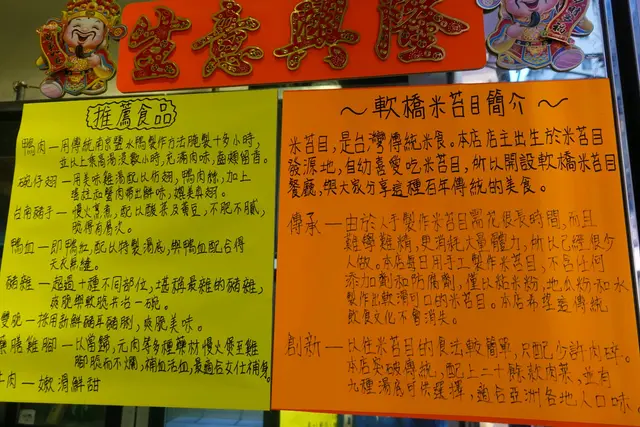 生意興隆
推薦食品
鴨肉—用傳統南京鹽水鴨製作方法醃製十多小時,
並以上素高湯浸數小時,充滿肉味,齒頰留香。
碗仔翅—用美味雞湯配以仿翅,鴨肉絲,加上
蟹肉帶出鮮味,媲美魚翅。
台南豬手—慢火煮煮,配以酸菜及黃豆,不肥不膩,
啖得有層次。
鴨血—即鴨紅,配以特製湯底,與鴨血配合得
天衣無縫。
豬雜—超過十種不同部位,堪稱最雜的豬雜,
爽脆與軟腍共冶一碗。
雙脆—採用新鮮豬年豬䐁,爽脆美味。
藥膳雞腳—以當歸,元肉等多種藥材慢火煲至雞
腳腍而不爛,補血活血,最適合女仕補身。
牛肉—嫩滑鮮甜
~軟橋米苔目簡介~
米苔目,是台灣傳統米食。本店店主出生於米苔目
發源地,自幼喜愛吃米苔目,所以開設軟橋米苔目
餐廳,與大家分享這種百年傳統的美食。
傳承—由於人手製作米苔目需花很長時間,而且
雞精,更消耗大量體力,所以已經很少
人做。本店每日用手工製作米苔目,不含任何
添加劑和防腐劑,僅以秈米粉,地瓜粉和水
製作出軟滑可口的米苔目。本店希望這傳統
飲食文化不會消失。
創新—以往米苔目的食法較簡單,只配少許肉碎。
本店突破傳統,配上二十餘款肉菜,並有
九種湯底可供選擇,適合亞洲各地人口味。